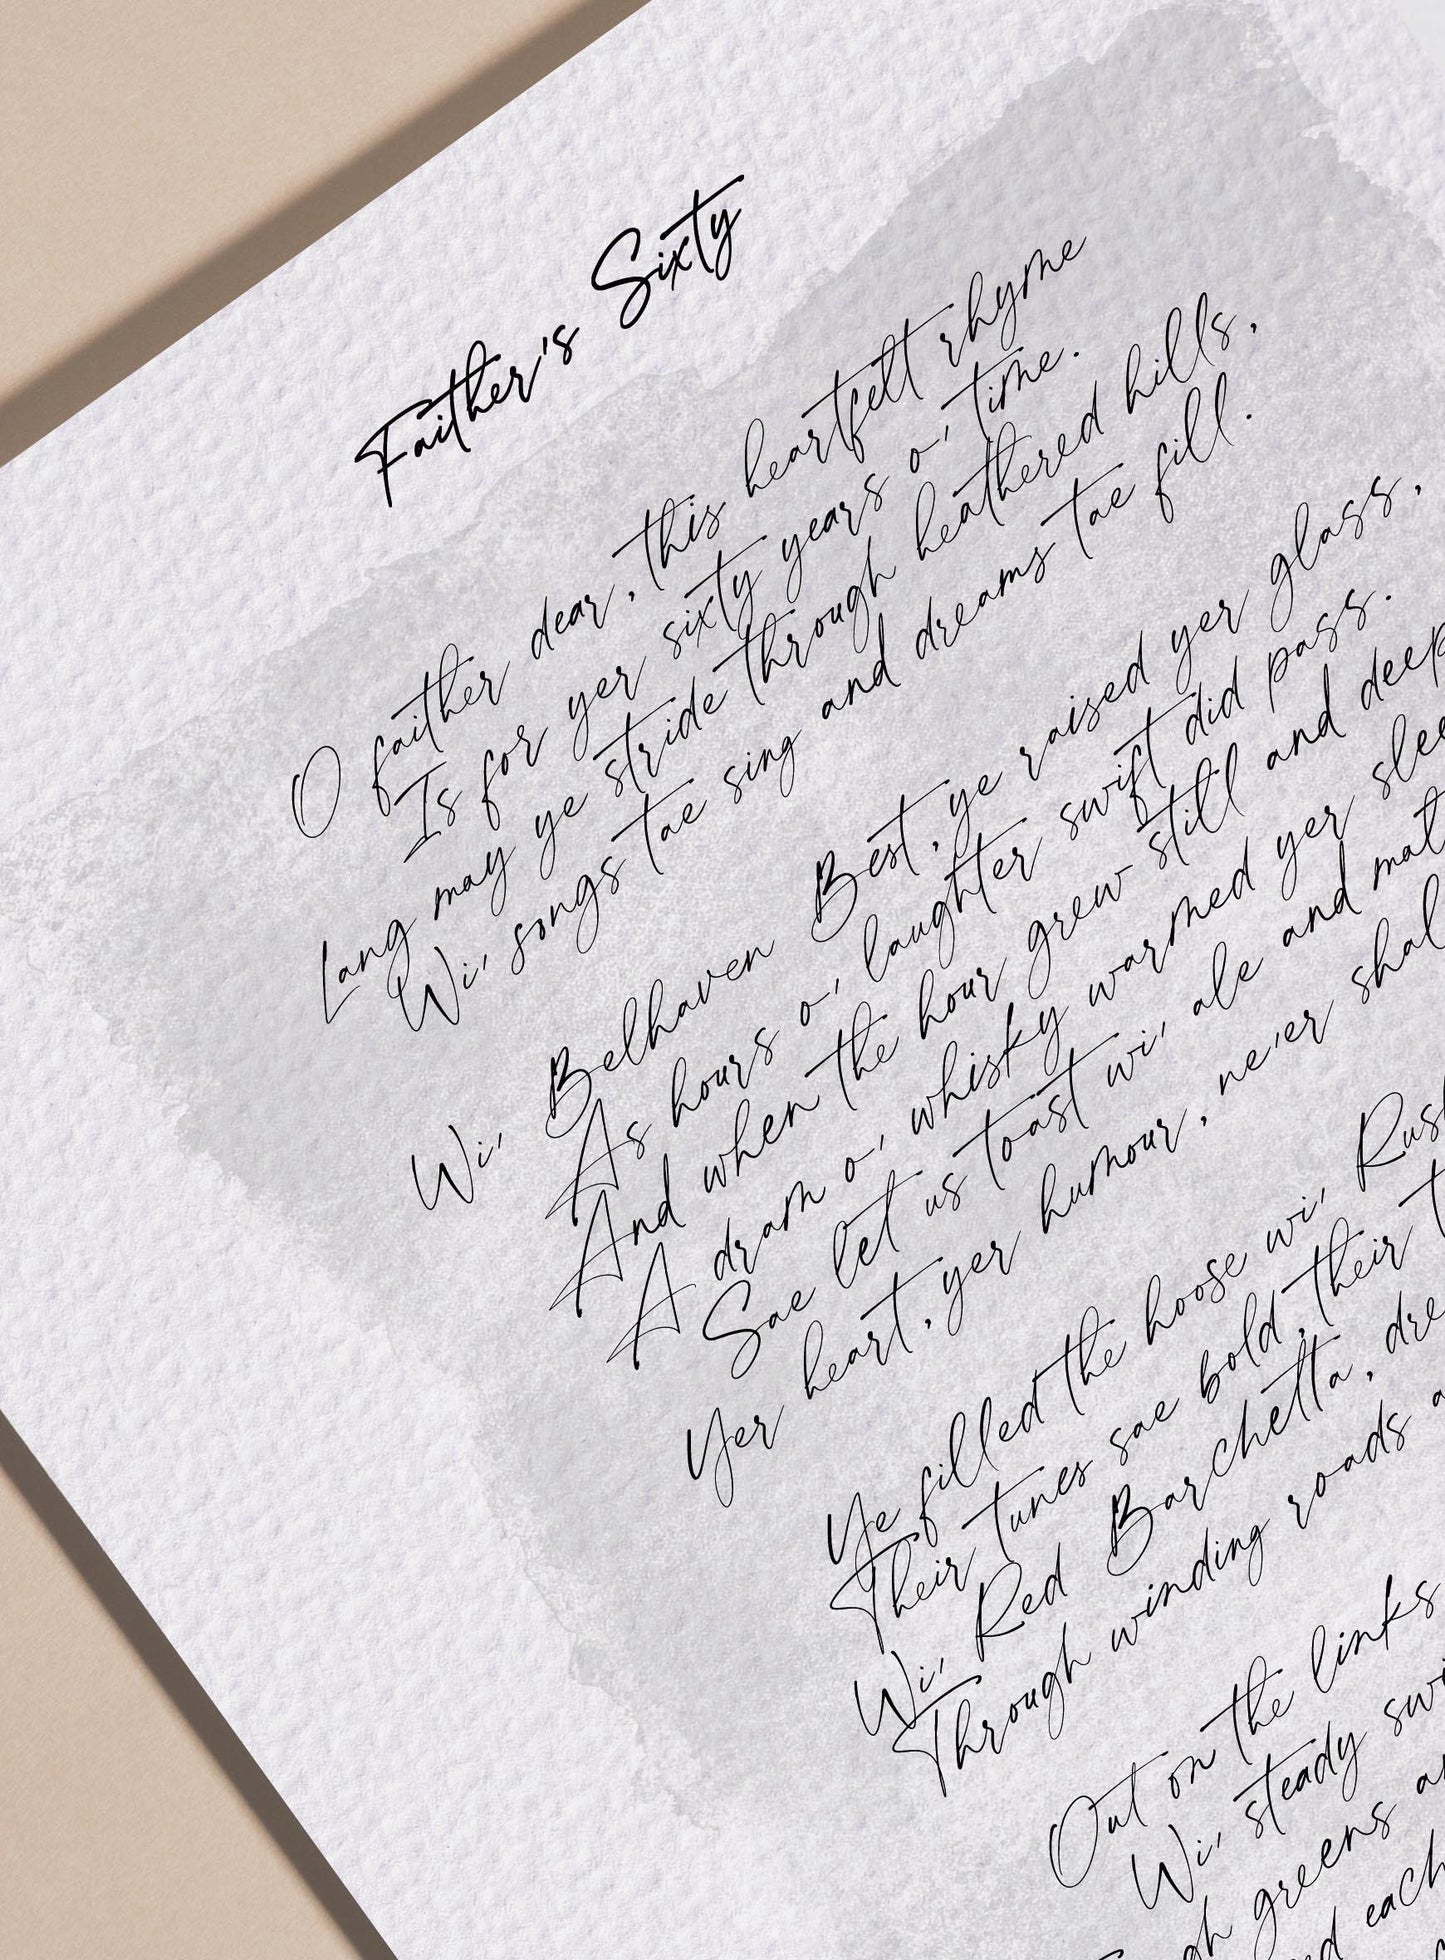 Faither's Sixty
O faither dear, this heartfelt rhyme
Is for yer sixty years o' time.
Lang may ye stride through heathered hills,
Wi' songs tae sing and dreams tae fill.
Wi' Belhaven Best, ye raised yer glass,
As hours o' laughter swift did pass.
And when the hour grew still and deep
A dram o' whisky warmed yer
Sae let us toast wi' ale and
Yer heart, yer humour, ne'er
Ye filled the hoose wi'
Their tunes sae bold, their
Wi' Red Barchetta,
Through winding roads
Out on the links
Wi' steady
greens
each